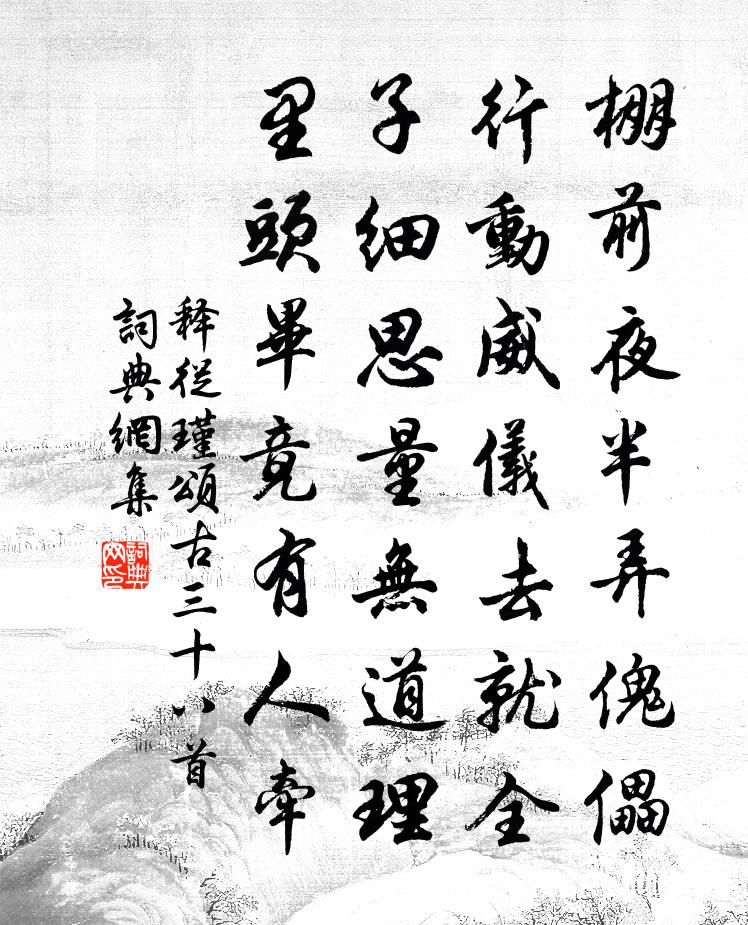 棚前夜半弄傀儡
行動威儀去就全
子細思量無道理
里頭畢竟有人牽
释從瑾頌古三十八首
詞典網集
詞典